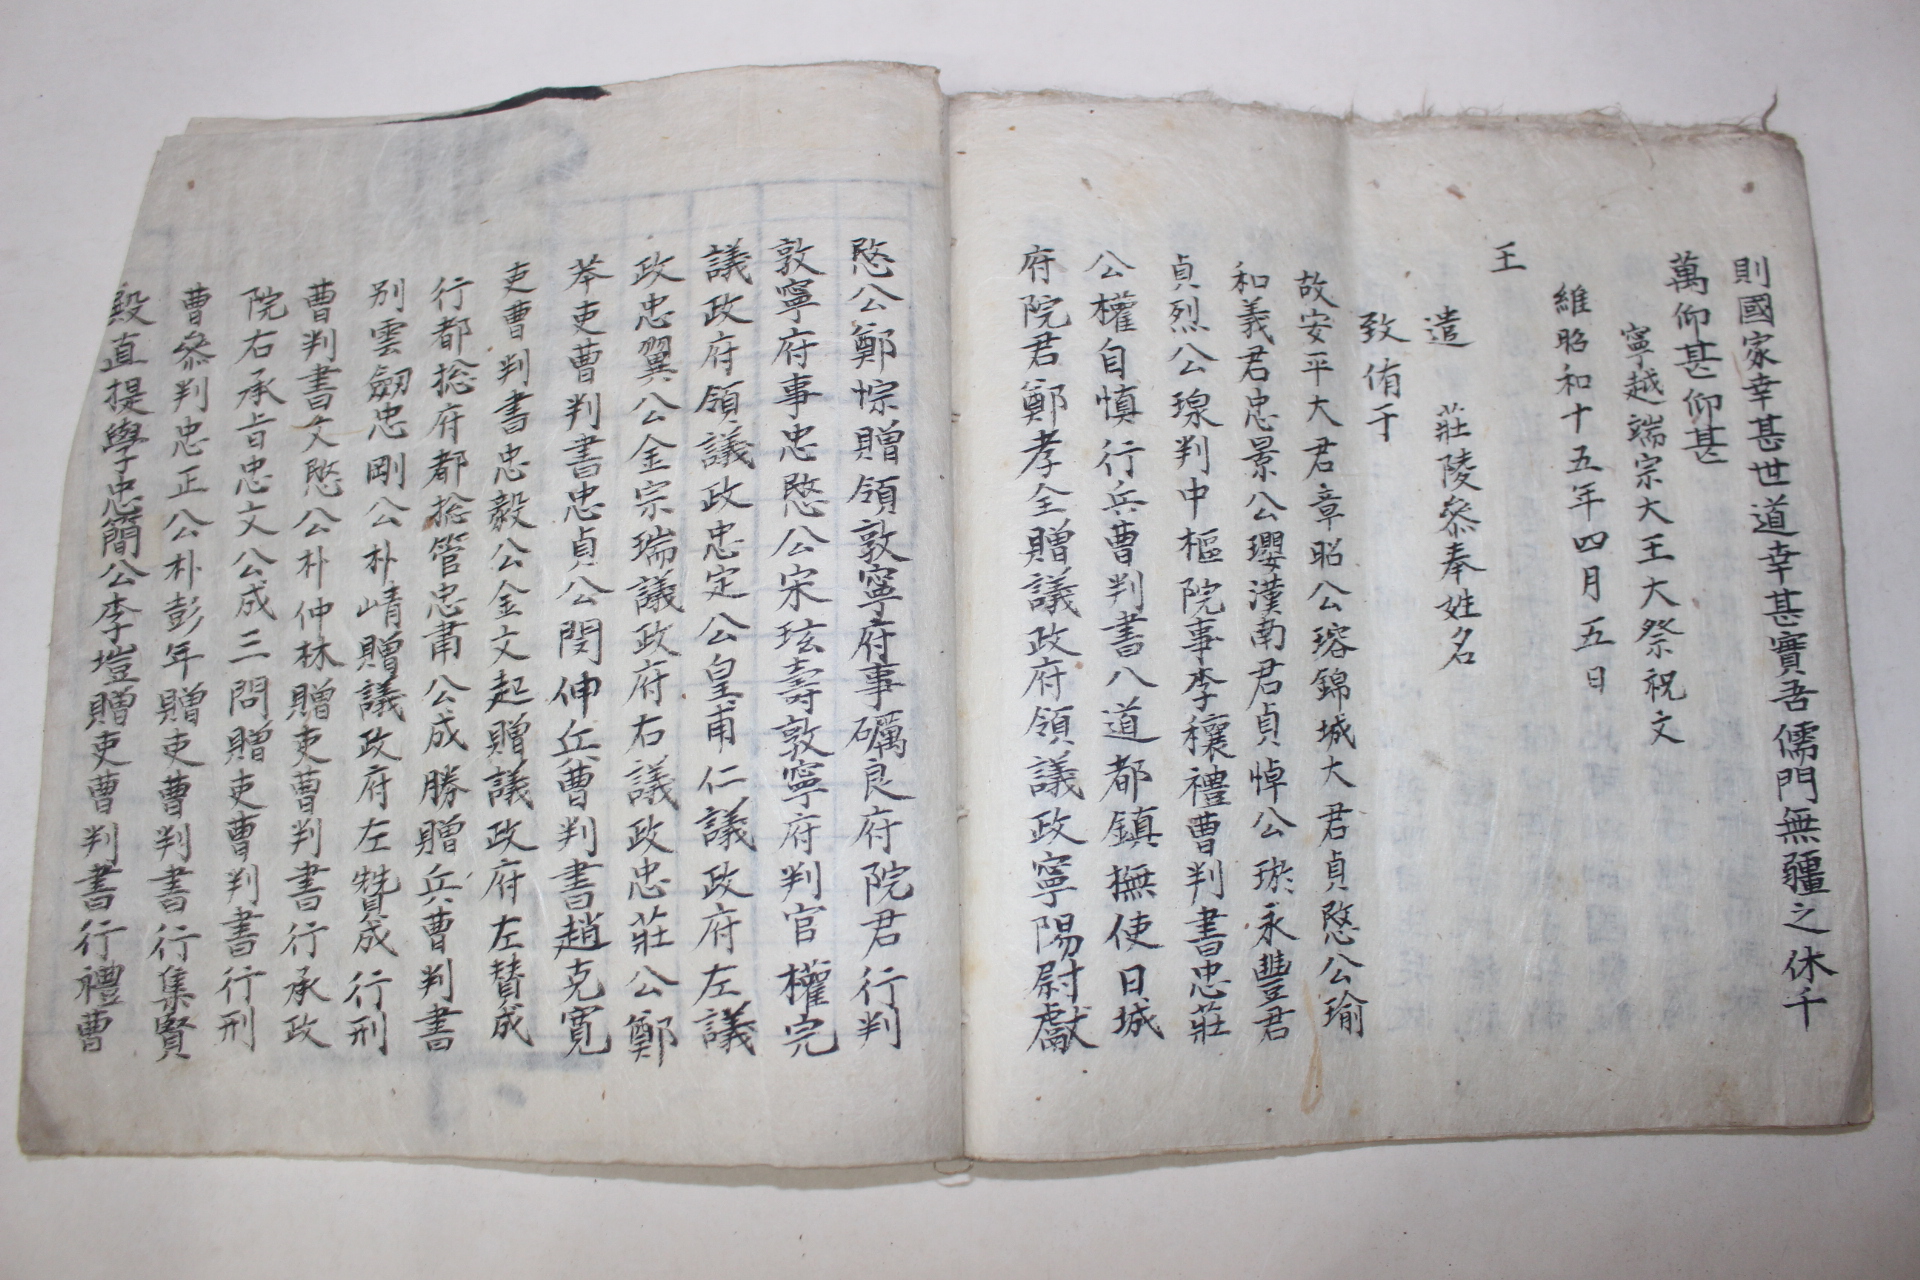 則國家幸甚世道幸甚實吾儒門無疆之休千
萬仰甚仰甚
寧越端宗大王大祭祝文
維昭和十五年四月五日
王
遣　莊陵參奉姓名
致侑于
故安平大君章昭公瑢錦城大君貞愍公瑜
和義君忠景公瓔漢南君貞悼公𤥽永豐君
貞烈公瑔判中樞院事李穰禮曹判書忠莊
公權自愼行兵曹判書八道都鎭撫使日城
府院君鄭孝全贈議政府領議政寧陽尉獻
愍公鄭悰贈領敦寧府事礪良府院君行判
敦寧府事忠愍公宋玹壽敦寧府判官權完
議政府領議政忠定公皇甫仁議政府左議
政忠翼公金宗瑞議政府右議政忠莊公鄭
苯吏曹判書忠貞公閔伸兵曹判書趙克寬
吏曹判書忠毅公金文起贈議政府左贊成
行都摠府都摠管忠肅公成勝贈兵曹判書
別雲劒忠剛公朴崝贈議政府左贊成行刑
曹判書文愍公朴仲林贈吏曹判書行承政
院右承旨忠文公成三問贈吏曹判書行刑
曹參判忠正公朴彭年贈吏曹判書行集賢
殿直提學忠簡公李塏贈吏曹判書行禮曹